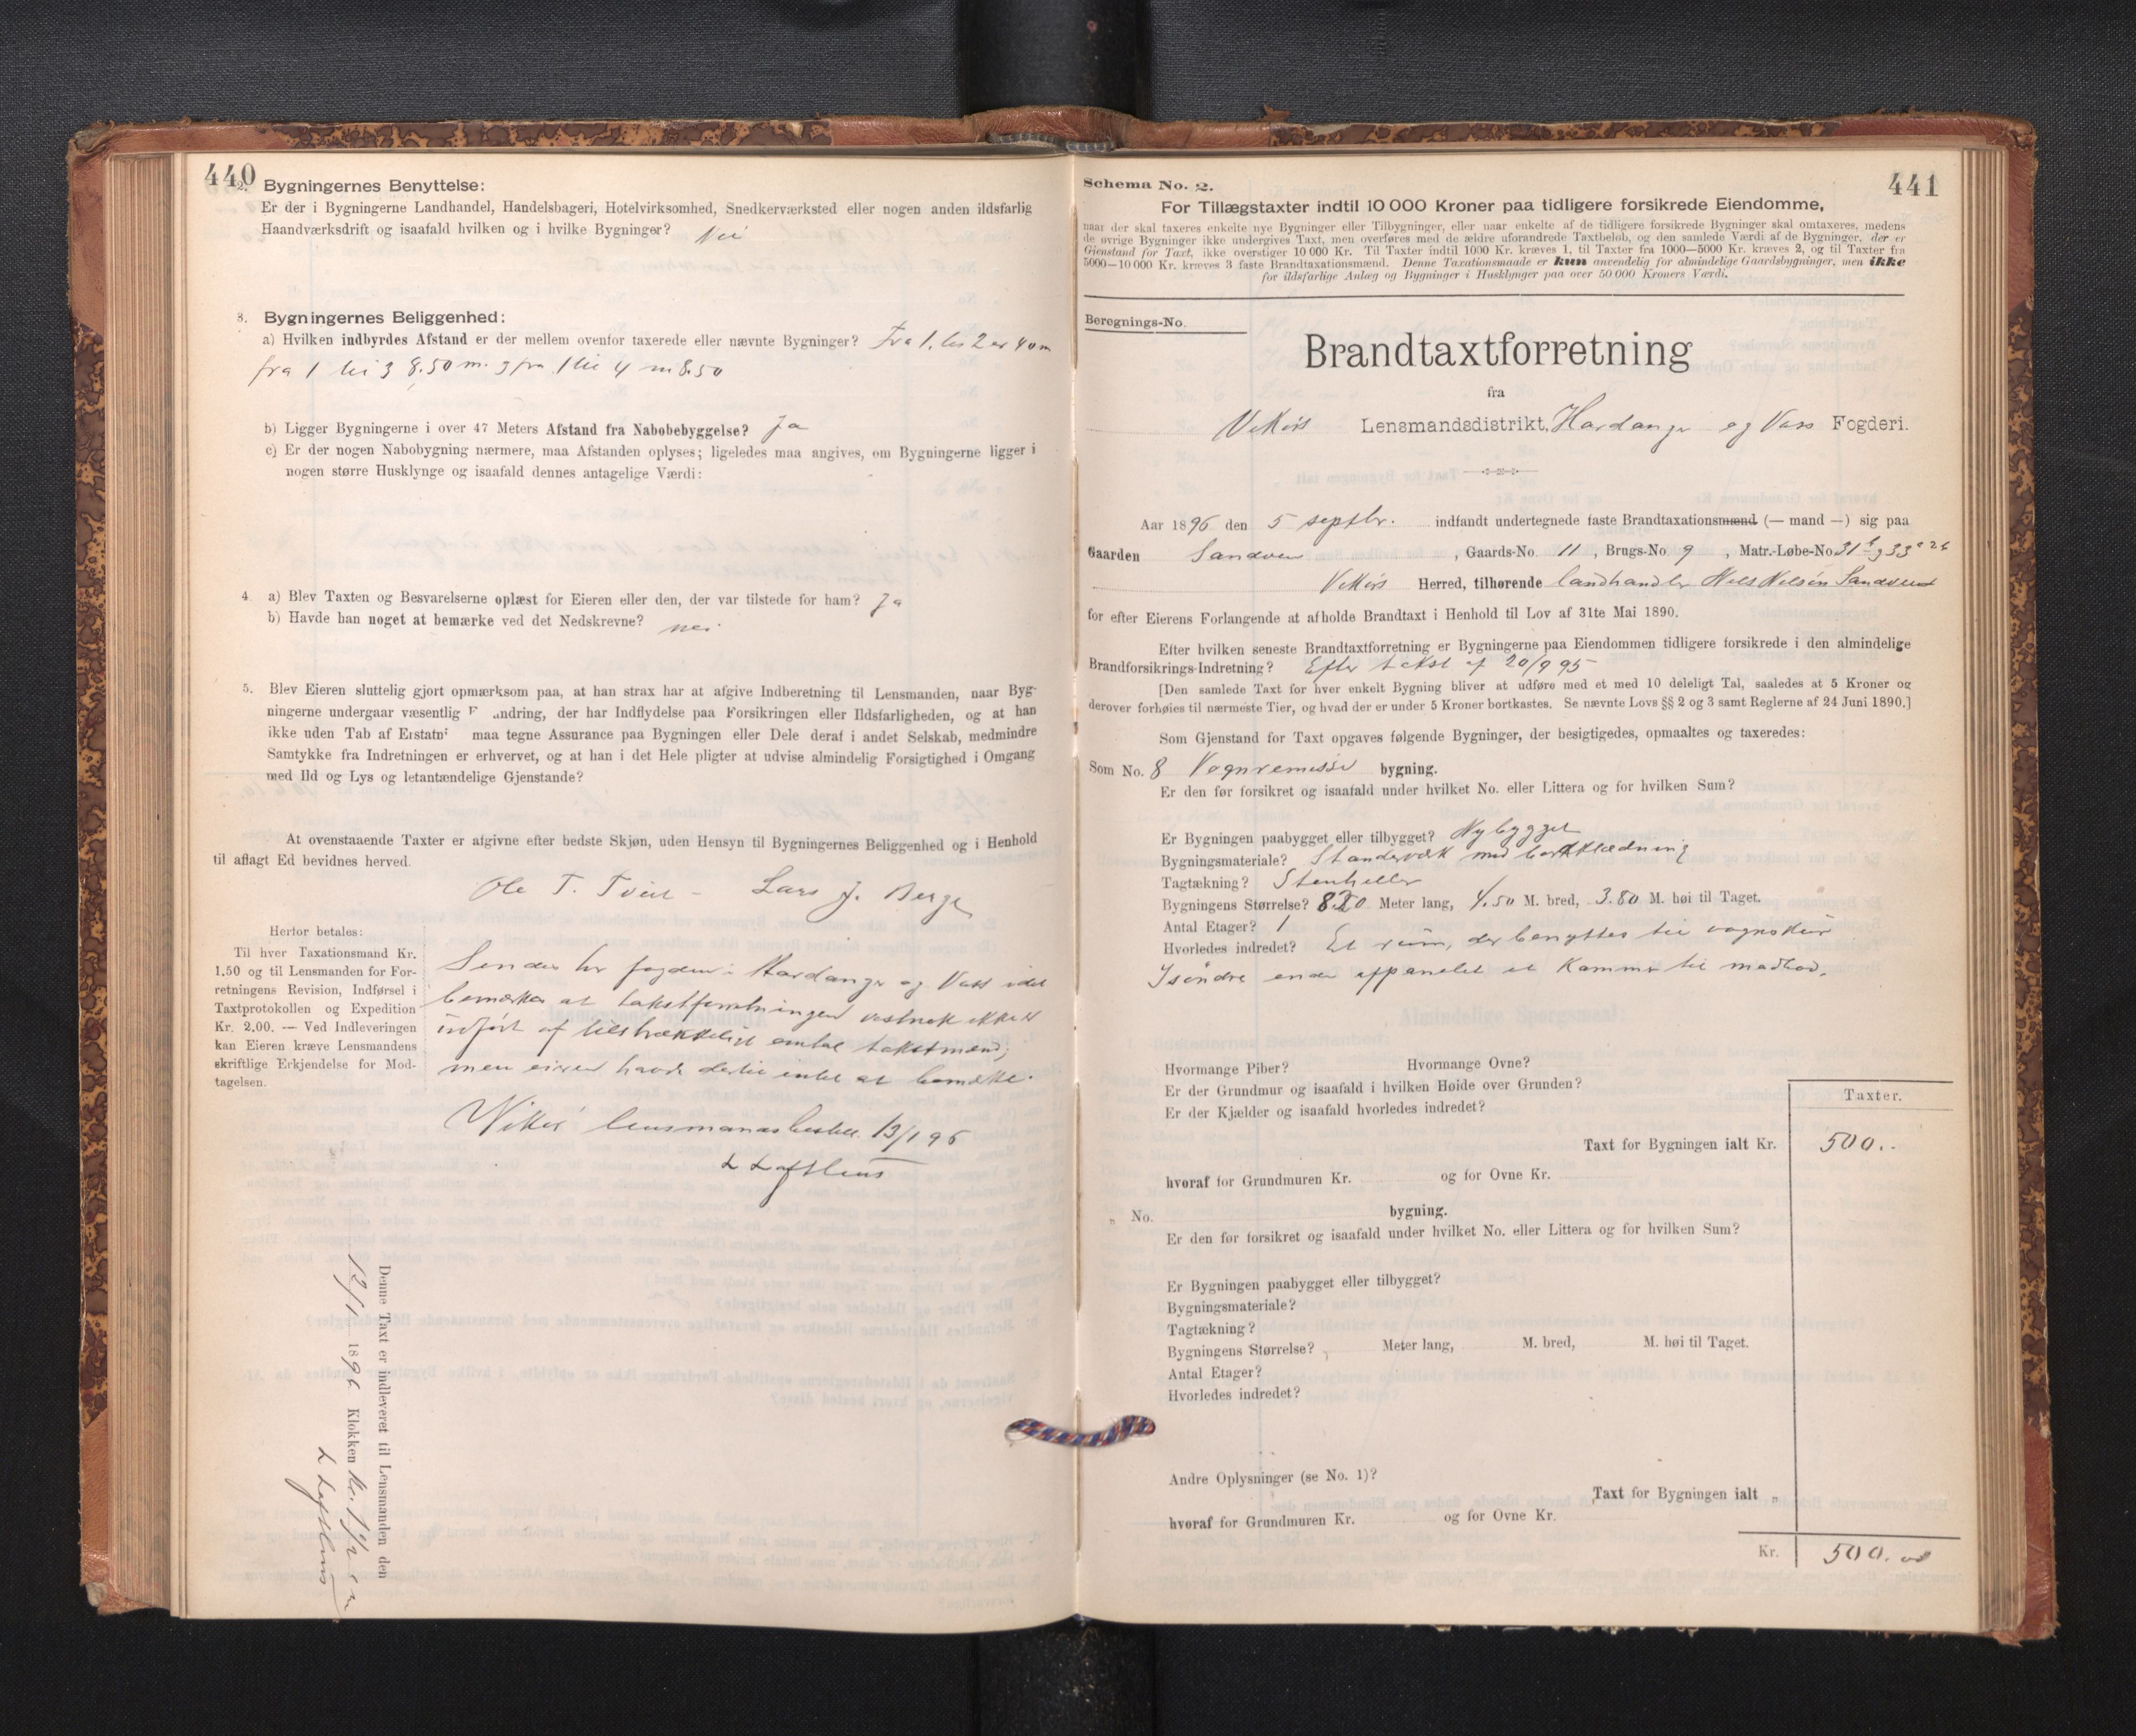 440
2. Bygningernes Benyttelse:
Er der i Bygningerne Landhandel, Handelsbageri, Hotelvirksomhed, Snedkerværksted eller nogen anden ildsfarlig
Haandværksdrift og isaafald hvilken og i hvilke Bygninger? Nei
3. Bygningernes Beliggenhed:
a) Hvilken indbyrdes Afstand er der mellem ovenfor taxerede eller nævnte Bygninger? Fra 1 til 2 er 40 m
fra 1 til 3 8,50 m. og fra 1 til 4 m 8.50
b) Ligger Bygningerne i over 47 Meters Afstand fra Nabobebyggelse? Ja
c) Er der nogen Nabobygning nærmere, maa Afstanden oplyses; ligeledes maa angives, om Bygningerne ligger i
nogen større Husklynge og isaafald dennes antagelige Værdi:
4. a) Blev Taxten og Besvarelserne oplæst for Eieren eller den, der var tilstede for ham? Ja
b) Havde han noget at bemærke ved det Nedskrevne? nei
5. Blev Eieren sluttelig gjort opmærksom paa, at han strax har at afgive Indberetning til Lensmanden, naar Byg-
ningerne undergaar væsentlig andring, der har Indflydelse paa Forsikringen eller Ildsfarligheden, og at han
ikke uden Tab af Erstatn maa tegne Assurance paa Bygningen eller Dele deraf i andet Selskab, medmindre
Samtykke fra Indretningen er erhvervet, og at han i det Hele pligter at udvise almindelig Forsigtighed i Omgang
med Ild og Lys og letantændelige Gjenstande?
At ovenstaaende Taxter er afgivne efter bedste Skjøn, uden Hensyn til Bygningernes Beliggenhed og i Henhold
til aflagt Ed bevidnes herved.
Ole T. Tveit - Lars J. Berge
Herfor betales:
Til hver Taxationsmand Kr.
1.50 og til Lensmanden for For-
retningens Revision, Indførsel i
Taxtprotokollen og Expedition
Kr. 2.00. — Ved Indleveringen
kan Eieren kræve Lensmandens
skriftlige Erkjendelse for Mod-
tagelsen.
Sendes hr fogden i Hardanger og Voss idet
bemærkes at takstforretningen ikke er
udført af tilstrækkeligt antal takstmænd;
men eieren havde dertil intet at bemærke.
Vikør lensmandsbestill. 13/1 96
L Lofthus
Denne Taxt er indleveret til Lensmanden den
13/1 1896 Klokken
L Lofthus
441
Schema No. 2.
For Tillægstaxter indtil 10 000 Kroner paa tidligere forsikrede Eiendomme,
naar der skal taxeres enkelte nye Bygninger eller Tilbygninger, eller naar enkelte af de tidligere forsikrede Bygninger skal omtaxeres, medens
de øvrige Bygninger ikke undergives Taxt, men overføres med de ældre uforandrede Taxtbeløb, og den samlede Værdi af de Bygninger, der er
Gjenstand for Taxt, ikke overstiger 10 000 Kr. Til Taxter indtil 1000 Kr. kræves 1, til Taxter fra 1000—5000 Kr. kræves 2, og til Taxter fra
5000—10 000 Kr. kræves 3 faste Brandtaxationsmænd. Denne Taxationsmaade er kun anvendelig for almindelige Gaardsbygninger, men ikke
for ildsfarlige Anlæg og Bygninger i Husklynger paa over 50 000 Kroners Værdi.
Beregnings-No.
Brandtaxtforretning
fra
Vikørs Lensmandsdistrikt, Hardanger og Voss Fogderi.
Aar 1896 den 5 septbr. indfandt undertegnede faste Brandtaxationsmænd (— mand —) sig paa
Gaarden Sandven, Gaards-No. 11, Brugs-No. 9, Matr.-Løbe-No. 31
Vikørs Herred, tilhørende landhandler Nils Nilsen Sandven
for efter Eierens Forlangende at afholde Brandtaxt i Henhold til Lov af 31te Mai 1890.
Efter hvilken seneste Brandtaxtforretning er Bygningerne paa Eiendommen tidligere forsikrede i den almindelige
Brandforsikrings-Indretning? Efter takst af 20/9 95
[Den samlede Taxt for hver enkelt Bygning bliver at udføre med et med 10 deleligt Tal, saaledes at 5 Kroner og
derover forhøies til nærmeste Tier, og hvad der er under 5 Kroner bortkastes. Se nævnte Lovs §§ 2 og 3 samt Reglerne af 24 Juni 1890.]
Som Gjenstand for Taxt opgaves følgende Bygninger, der besigtigedes, opmaaltes og taxeredes:
Som No. 8 Vognremisse bygning.
Er den før forsikret og isaafald under hvilket No. eller Littera og for hvilken Sum?
Er Bygningen paabygget eller tilbygget? Nybygget
Bygningsmateriale? Standervæk med bordklædning
Tagtækning? Stenheller
Bygningens Størrelse? 8.20 Meter lang, 4.50 M. bred, 3.80 M. høi til Taget.
Antal Etager? 1
Hvorledes indredet? Et rum, der benyttes til vognskur
I søndre ende oppanelet et kammer til madbod.
Hvormange Piber? Hvormange Ovne?
Er der Grundmur og isaafald i hvilken Høide over Grunden?
Er der Kjælder og isaafald hvorledes indredet?
Taxter.
Taxt for Bygningen ialt Kr. 500.-
hvoraf for Grundmuren Kr. og for Ovne Kr.
„ No. bygning.
Er den før forsikret og isaafald under hvilket No. eller Littera og for hvilken Sum?
Er Bygningen paabygget eller tilbygget?
Bygningsmateriale?
Tagtækning?
Bygningens Størrelse? Meter lang, M. bred, M. høi til Taget.
Antal Etager?
Hvorledes indredet?
Andre Oplysninger (se No. 1)?
Taxt for Bygningen ialt „
hvoraf for Grundmuren Kr. og for Ovne Kr.
Kr. 500.00